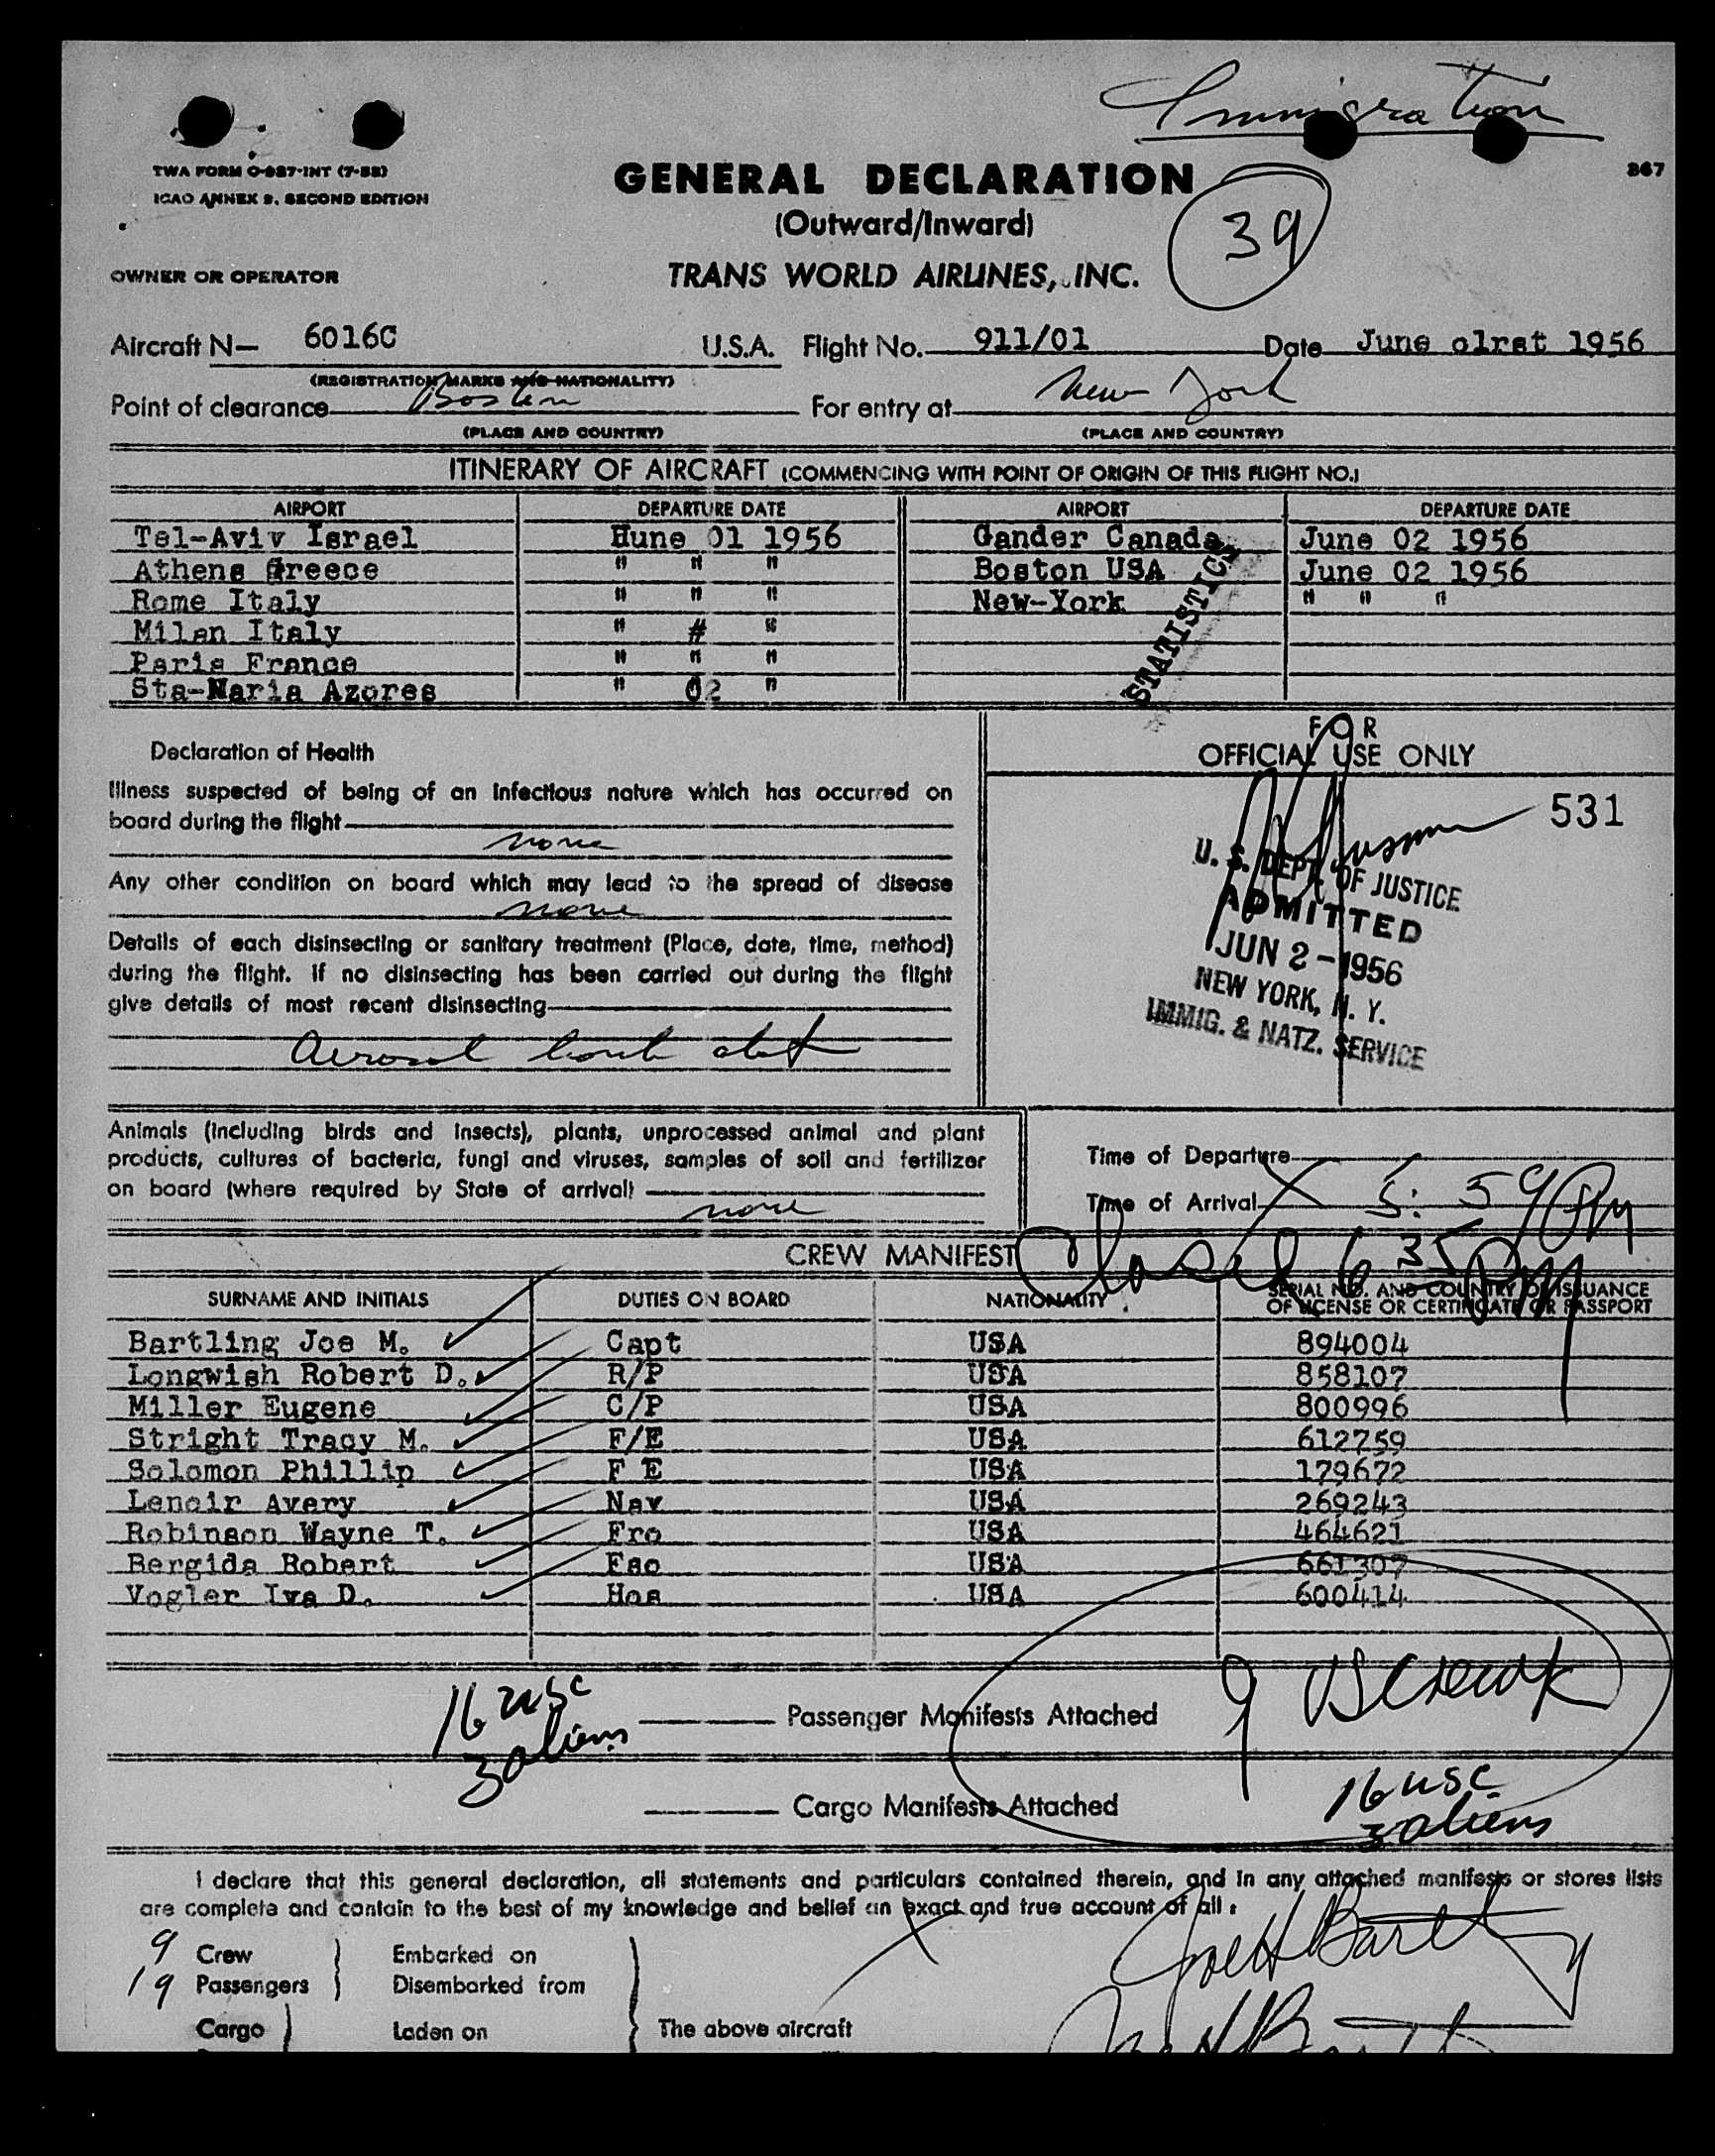 Immigration
TWA FORM O-987-INT (7-55)
ICAO ANNEX 9, SECOND EDITION
GENERAL DECLARATION
(Outward/Inward)
39
867
OWNER OR OPERATOR
TRANS WORLD AIRLINES, INC.
Aircraft N— 6016C U.S.A. Flight No. 911/01 Date June o1rst 1956
(REGISTRATION MARKS AND NATIONALITY)
Point of clearance Boston For entry at New York
(PLACE AND COUNTRY) (PLACE AND COUNTRY)
ITINERARY OF AIRCRAFT (COMMENCING WITH POINT OF ORIGIN OF THIS FLIGHT NO.)
AIRPORT DEPARTURE DATE AIRPORT DEPARTURE DATE
Tel-Aviv Israel Hune 01 1956 Gander Canada June 02 1956
Athens Greece " " " Boston USA June 02 1956
Rome Italy " " " New-York " " "
Milan Italy " # "
Paris France " " "
Sta-Maria Azores " 02 "
STATISTICS
Declaration of Health
Illness suspected of being of an infectious nature which has occurred on
board during the flight
none
Any other condition on board which may lead to the spread of disease
none
Details of each disinsecting or sanitary treatment (Place, date, time, method)
during the flight. If no disinsecting has been carried out during the flight
give details of most recent disinsecting
Aerosol bomb
FOR
OFFICIAL USE ONLY
531
U. S. DEPT. OF JUSTICE
ADMITTED
JUN 2 - 1956
NEW YORK, N. Y.
IMMIG. & NATZ. SERVICE
Animals (including birds and insects), plants, unprocessed animal and plant
products, cultures of bacteria, fungi and viruses, samples of soil and fertilizer
on board (where required by State of arrival)
none
Time of Departure
Time of Arrival X 5:59 PM
Closed 6 35 PM
CREW MANIFEST
SURNAME AND INITIALS DUTIES ON BOARD NATIONALITY SERIAL NO. AND COUNTRY OF ISSUANCE
OF LICENSE OR CERTIFICATE OR PASSPORT
Bartling Joe M. Capt USA 894004
Longwish Robert D. R/P USA 858107
Miller Eugene C/P USA 800996
Stright Tracy M. F/E USA 612759
Solomon Phillip F E USA 179672
Lenoir Avery Nav USA 269243
Robinson Wayne T. Fro USA 464621
Bergida Robert Fso USA 661307
Vogler Iva D. Hos USA 600414
16 usc
3 aliens
Passenger Manifests Attached
9
Cargo Manifests Attached
16 usc
3 aliens
I declare that this general declaration, all statements and particulars contained therein, and in any attached manifests or stores lists
are complete and contain to the best of my knowledge and belief an exact and true account of all :
9 Crew Embarked on
19 Passengers Disembarked from
Cargo Laden on The above aircraft